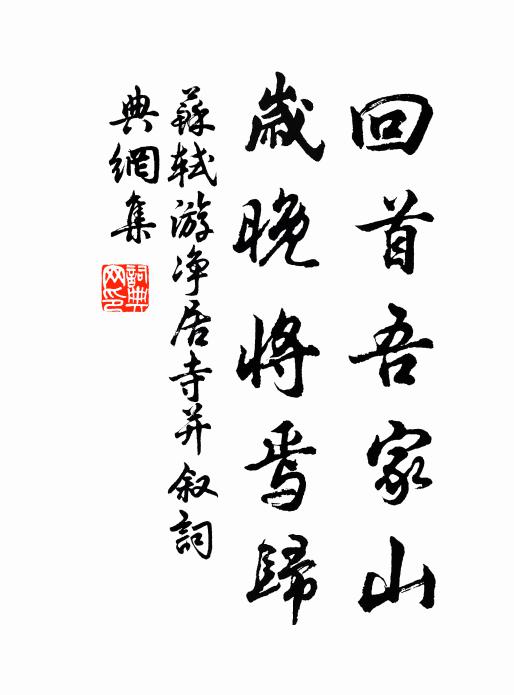 回首吾家山
歲晚將焉歸
蘇軾游净居寺并叙詞
典網集
詞典
网印